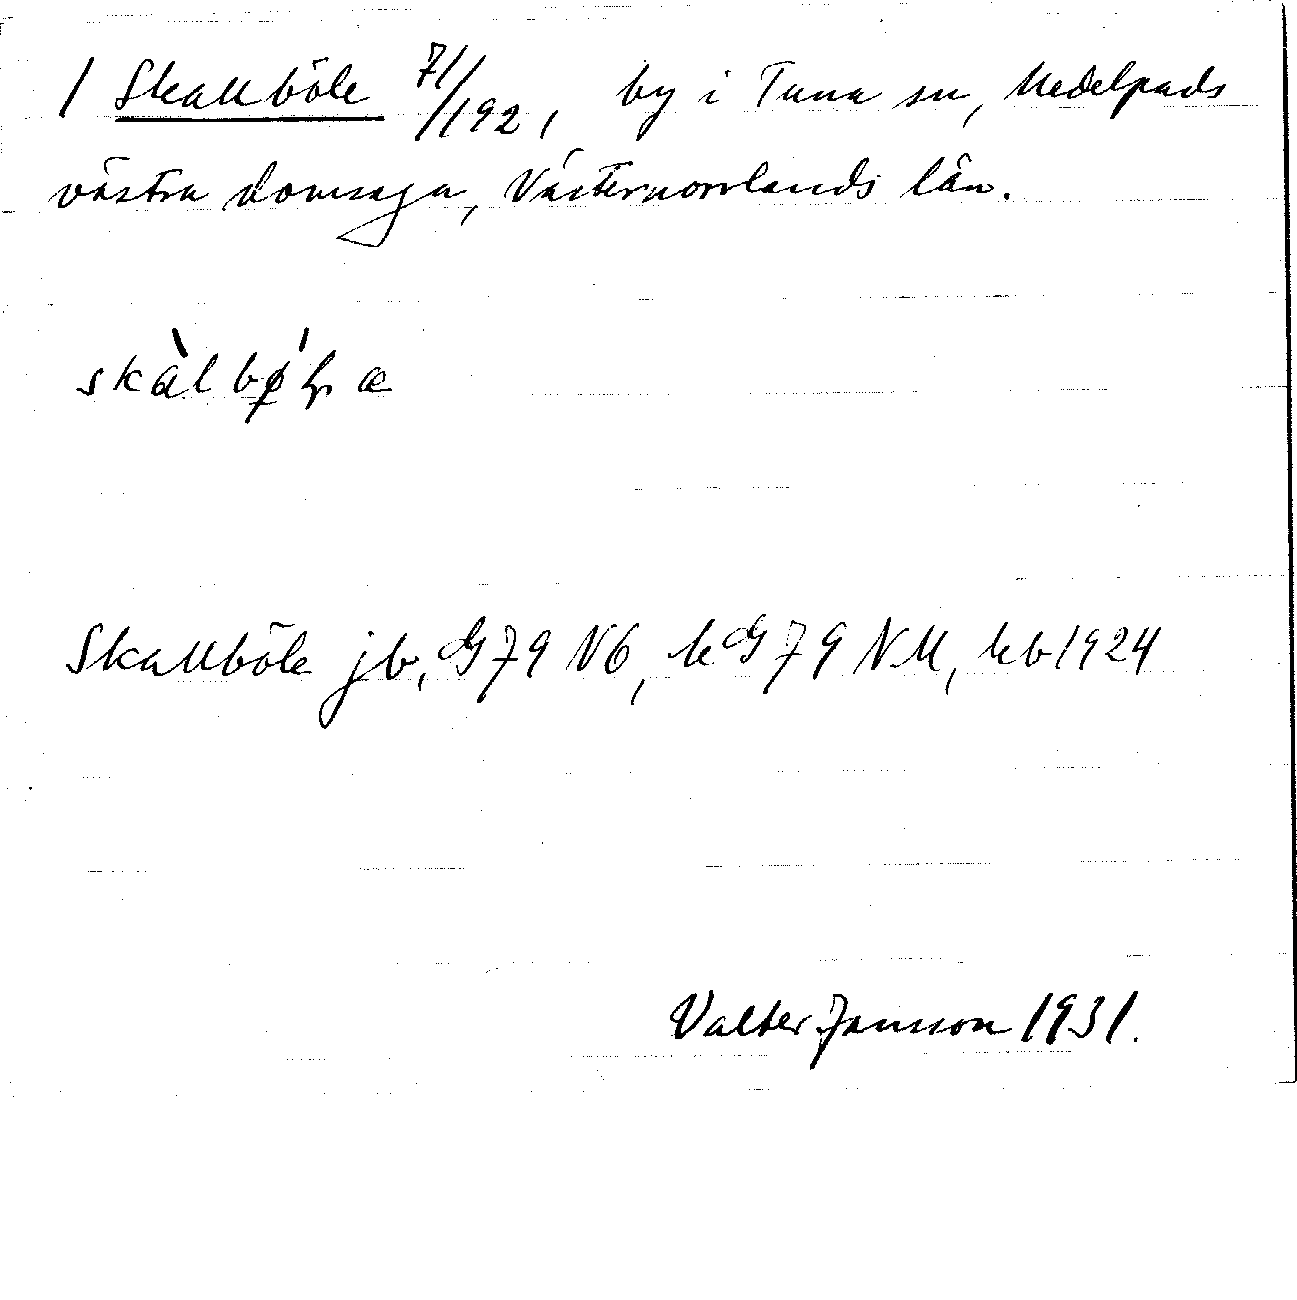 / Skallböle 71/192, by i Tuna sn, Medelpads
västra domsaga, Västernorrlands län.
Skallböle jb, G79 N6, k G79 NM, kb 1924
Valter Jansson 1931.